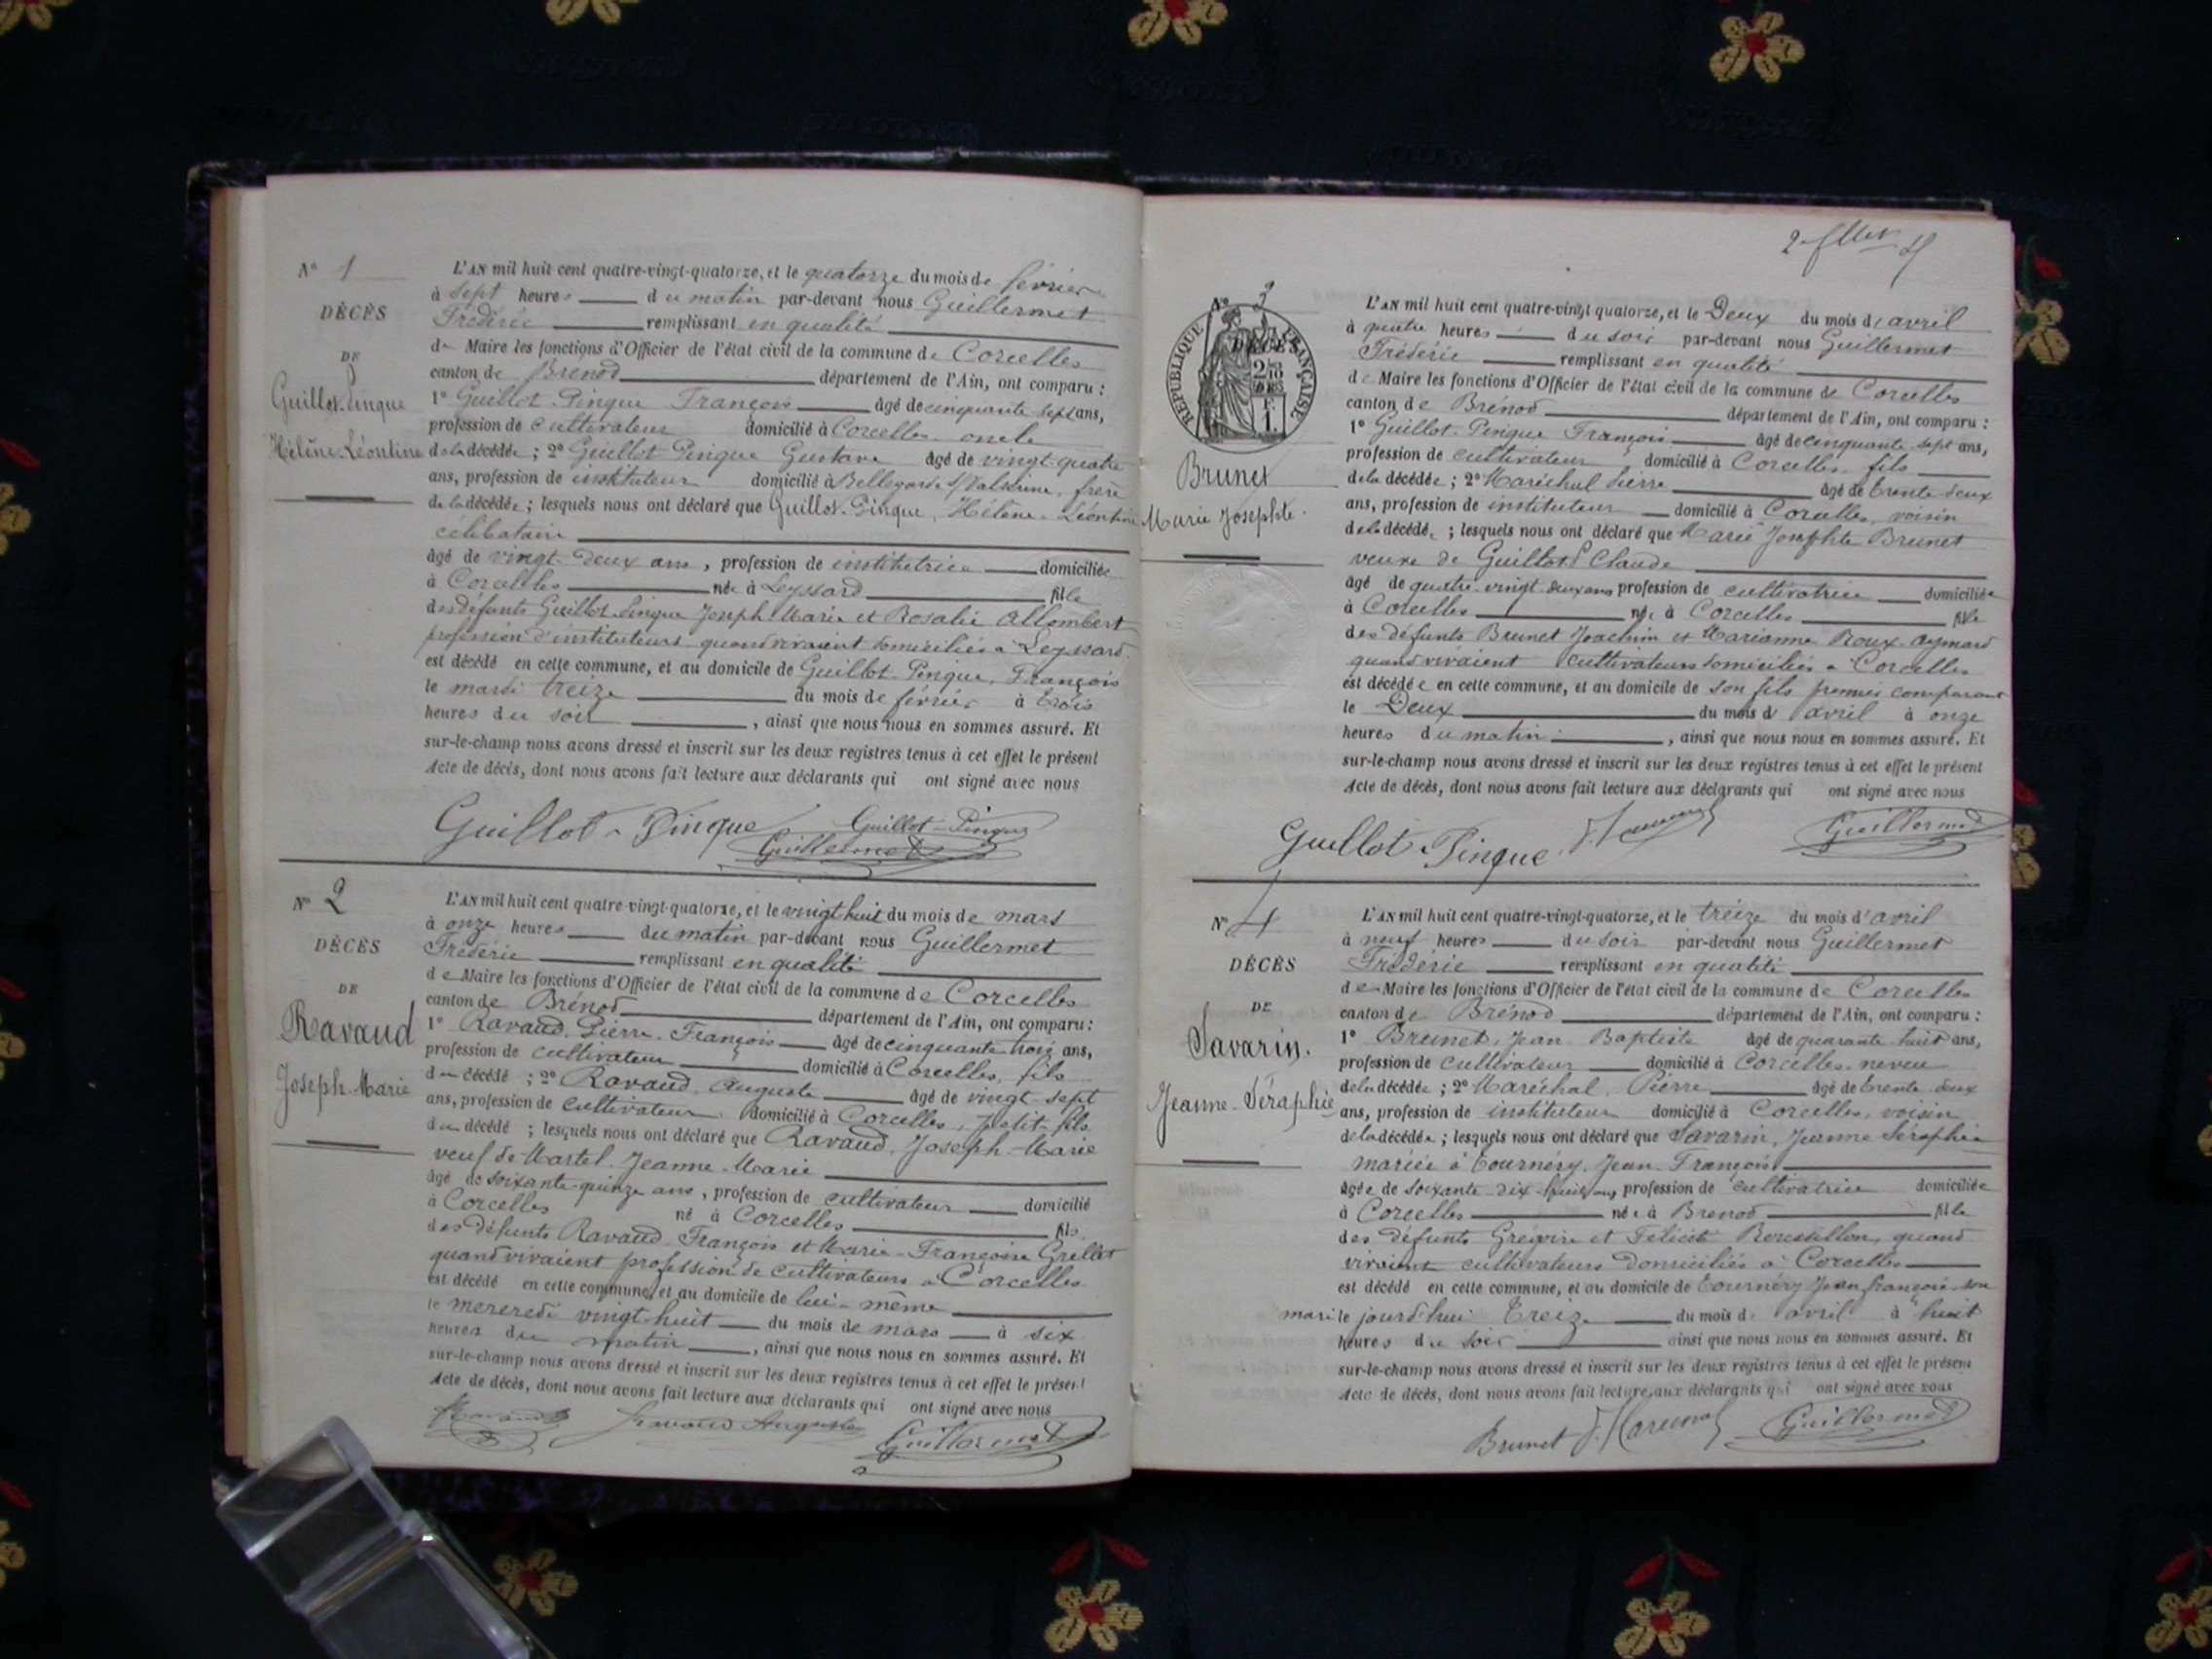 N° 1
DÉCÈS
DE
Guillot-Pingue
Hélène-Léontine
L'AN mil huit cent quatre-vingt-quatorze, et le quatorze du mois de février
à sept heures du matin par-devant nous Guillermet
Frédéric remplissant en qualité
de Maire les fonctions d'Officier de l'état civil de la commune de Corcelles
canton de Brénod département de l'Ain, ont comparu :
1° Guillot-Pingue François âgé de cinquante sept ans,
profession de cultivateur domicilié à Corcelles oncle
de la décédée ; 2° Guillot Pingue Gustave âgé de vingt-quatre
ans, profession de instituteur domicilié à Bellegarde s/Valserine, frère
de la décédée ; lesquels nous ont déclaré que Guillot-Pingue, Hélène-Léontine
célibataire
âgé de vingt-deux ans, profession de institutrice domiciliée
à Corcelles née à Leyssard fille
des défunts Guillot-Pingue Joseph Marie et Rosalie Allombert
profession d'instituteurs quand vivaient domiciliés à Leyssard.
est décédé en cette commune, et au domicile de Guillot-Pingue, François
le mardi treize du mois de février à trois
heures du soir , ainsi que nous nous en sommes assuré. Et
sur-le-champ nous avons dressé et inscrit sur les deux registres tenus à cet effet le présent
Acte de décès, dont nous avons fait lecture aux déclarants qui ont signé avec nous
Guillot-Pingue Guillot-Pingue
Guillermet
N° 2
DÉCÈS
DE
Ravaud
Joseph-Marie
L'AN mil huit cent quatre-vingt-quatorze, et le vingt huit du mois de mars
à onze heures du matin par-devant nous Guillermet
Frédéric remplissant en qualité
de Maire les fonctions d'Officier de l'état civil de la commune de Corcelles
canton de Brénod département de l'Ain, ont comparu :
1° Ravaud, Pierre-François âgé de cinquante trois ans,
profession de cultivateur domicilié à Corcelles, fils
du décédé ; 2° Ravaud Auguste âgé de vingt-sept
ans, profession de cultivateur domicilié à Corcelles, petit-fils
du décédé ; lesquels nous ont déclaré que Ravaud, Joseph-Marie
veuf de Martel Jeanne-Marie
âgé de soixante-quinze ans, profession de cultivateur domicilié
à Corcelles né à Corcelles fils
des défunts Ravaud François et Marie-Françoise Grillet
quand vivaient profession de cultivateurs à Corcelles
est décédé en cette commune, et au domicile de lui-même
le mercredi vingt-huit du mois de mars à six
heures du matin , ainsi que nous nous en sommes assuré. Et
sur-le-champ nous avons dressé et inscrit sur les deux registres tenus à cet effet le présent
Acte de décès, dont nous avons fait lecture aux déclarants qui ont signé avec nous
Ravaud Ravaud Auguste Guillermet
N° 3
RÉPUBLIQUE FRANÇAISE
DÉCÈS
DE
Brunet
Marie Josephte.
L'AN mil huit cent quatre-vingt quatorze, et le Deux du mois d'avril
à quatre heures du soir par-devant nous Guillermet
Frédéric remplissant en qualité
de Maire les fonctions d'Officier de l'état civil de la commune de Corcelles
canton de Brénod département de l'Ain, ont comparu :
1° Guillot-Pingue François âgé de cinquante-sept ans,
profession de cultivateur domicilié à Corcelles fils
de la décédée ; 2° Maréchal Pierre âgé de trente-deux
ans, profession de instituteur domicilié à Corcelles, voisin
de la décédé, ; lesquels nous ont déclaré que Marie Josephte Brunet
veuve de Guillot P Claude
âgé de quatre-vingt-deux ans profession de cultivatrice domiciliée
à Corcelles née à Corcelles fille
des défunts Brunet Joachim et Marianne Roux-Aymard
quand vivaient cultivateurs domiciliés à Corcelles
est décédée en cette commune, et au domicile de son fils premier comparant
le Deux du mois d'avril à onze
heures du matin , ainsi que nous nous en sommes assuré. Et
sur-le-champ nous avons dressé et inscrit sur les deux registres tenus à cet effet le présent
Acte de décès, dont nous avons fait lecture aux déclarants qui ont signé avec nous
Guillot-Pingue Guillermet
N° 4
DÉCÈS
DE
Savarin.
Jeanne-Séraphie
L'AN mil huit cent quatre-vingt-quatorze, et le treize du mois d'avril
à neuf heures du soir par-devant nous Guillermet
Frédéric remplissant en qualité
de Maire les fonctions d'Officier de l'état civil de la commune de Corcelles
canton de Brénod département de l'Ain, ont comparu :
1° Brunet, Jean Baptiste âgé de quarante huit ans,
profession de cultivateur domicilié à Corcelles neveu
de la décédée ; 2° Maréchal, Pierre âgé de trente-deux
ans, profession de instituteur domicilié à Corcelles, voisin
de la décédée ; lesquels nous ont déclaré que Savarin, Jeanne Séraphie
mariée à Tournéry, Jean-François
âgée de soixante-dix-huit ans, profession de cultivatrice domiciliée
à Corcelles née à Brénod fille
des défunts Grégoire et Félicité Roussillon, quand
vivaient cultivateurs domiciliés à Corcelles
est décédé en cette commune, et au domicile de Tournéry Jean françois son
mari le jourd'hui treize du mois d'avril à huit
heures du soir ainsi que nous nous en sommes assuré. Et
sur-le-champ nous avons dressé et inscrit sur les deux registres tenus à cet effet le présent
Acte de décès, dont nous avons fait lecture aux déclarants qui ont signé avec nous
Brunet Guillermet